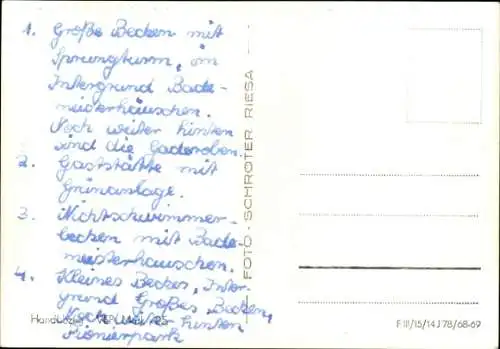 1. Große Becken mit
Sprungturm, im
Intergrund Bade-
meisterhäuschen.
Noch weiter hinten
sind die Gaderoben.
2. Gaststätte mit
Grünanlage.
3. Nichtschwimmer-
becken mit Bade-
meisterhäuschen.
4. Kleines Becken, Inter-
grund Großes Becken,
Noch weiter hinten
Pionierpark
FOTO - SCHRÖTER RIESA
F III/15/14 J 78/68-69